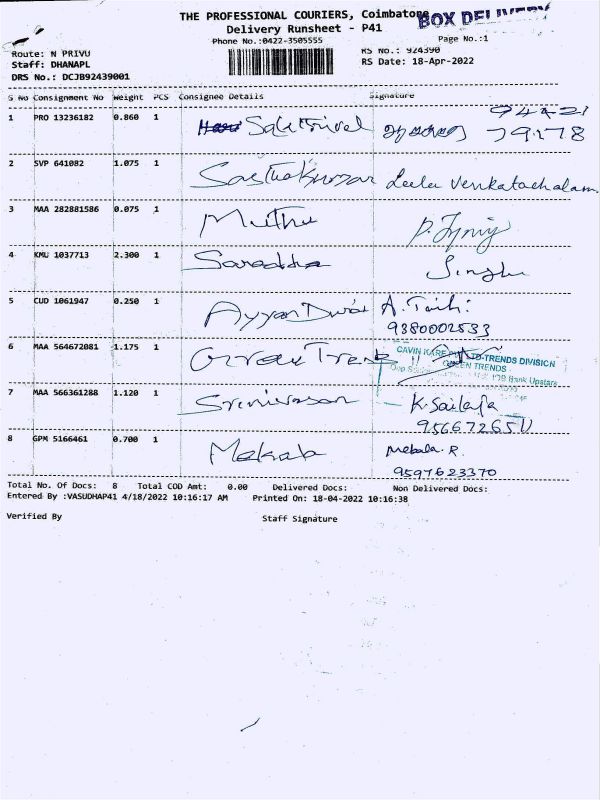 THE PROFESSIONAL COURIERS, Coimbatore
BOX DELIVERY
Delivery Runsheet - P41
Phone No.:0422-3505555
Page No.:1
Route: N PRIVU
Staff: DHANAPL
DRS No.: DCJB92439001
RS No.: 924390
RS Date: 18-Apr-2022
S No Consignment No Weight PCS Consignee Details Signature
1 PRO 13236182 0.860 1 Sakthivel
94421
79178
2 SVP 641082 1.075 1 Sasthakumar Leela Venkatachalam
3 MAA 282881586 0.075 1 Muthu
4 KMU 1037713 2.300 1 Saradha
5 CUD 1061947 0.250 1 Ayyan Durai
9380002533
6 MAA 564672081 1.175 1 Green Trends
CAVIN KARE PVT LTD-TRENDS DIVISION
GREEN TRENDS
Bank Upstairs
7 MAA 566361288 1.120 1 Srinivasan K. Sailaja
8 GPM 5166461 0.700 1 Mekala Mekala. R.
9597623370
Total No. Of Docs: 8 Total COD Amt: 0.00 Delivered Docs: Non Delivered Docs:
Entered By :VASUDHAP41 4/18/2022 10:16:17 AM Printed On: 18-04-2022 10:16:38
Verified By Staff Signature